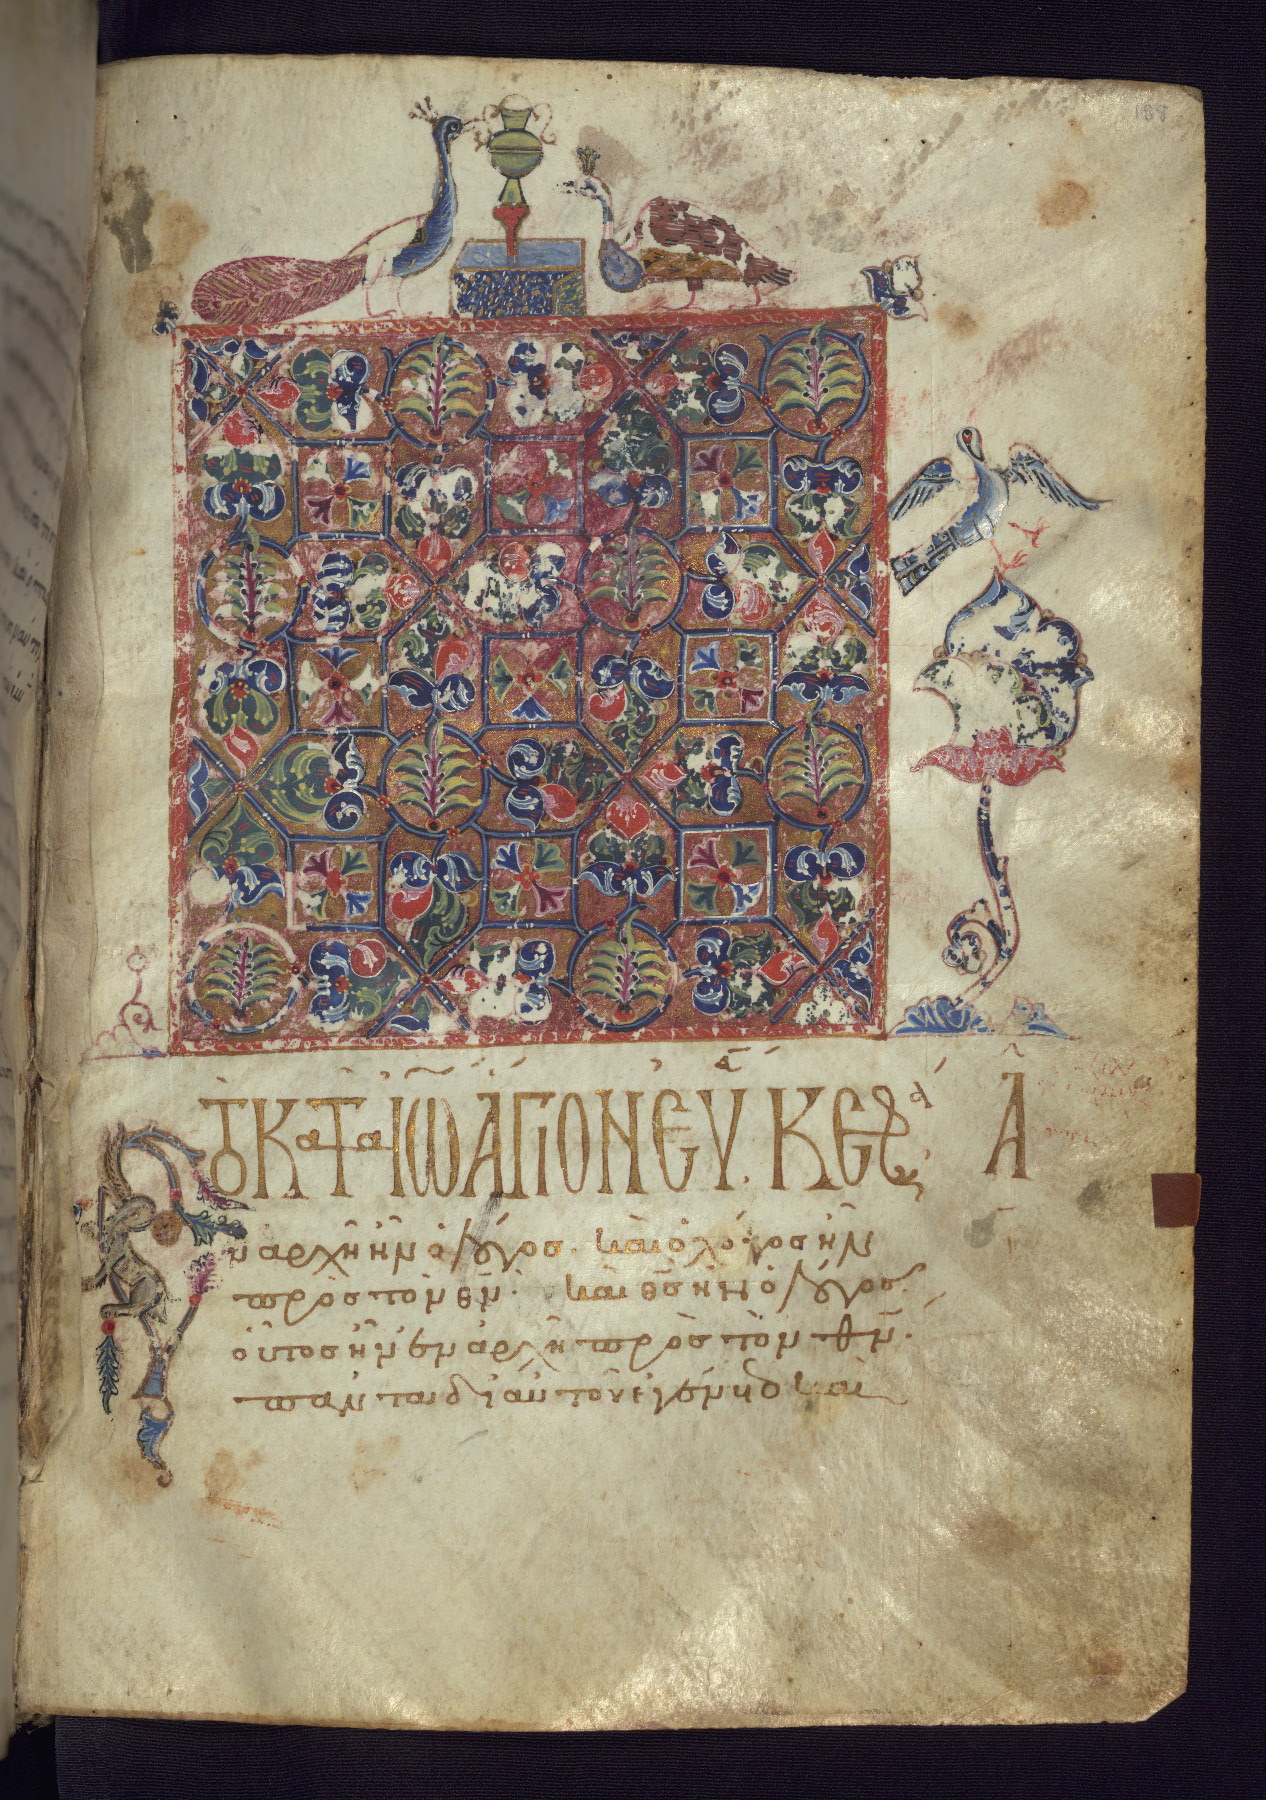 189
ΤΟ ΚΑΤᾺ ἸΩ ἍΓΙΟΝ ΕΥΑ. ΚΕΦΑ Α
Ἐν ἀρχῆ ἦν ὁ λόγος· καὶ ὁ λόγος ἦν
πρὸς τὸν θν̄· καὶ θς̄ ἦν ὁ λόγος·
οὗτος ἦν ἐν ἀρχῆ πρὸς τὸν θν̄·
πάντα δι' αὐτοῦ ἐγένετο καὶ